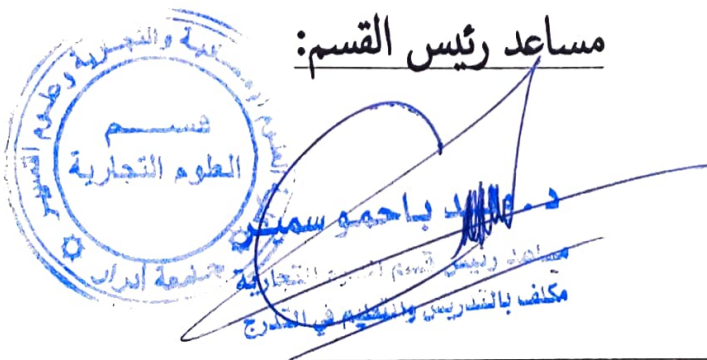 مساعد رئيس القسم:
كلية العلوم الاقتصادية والتجارية وعلوم التسيير
قسم
العلوم التجارية
جامعة أدرار
د. باحمو سمير
مساعد رئيس قسم العلوم التجارية
مكلف بالتدريس والتعليم في التدرج